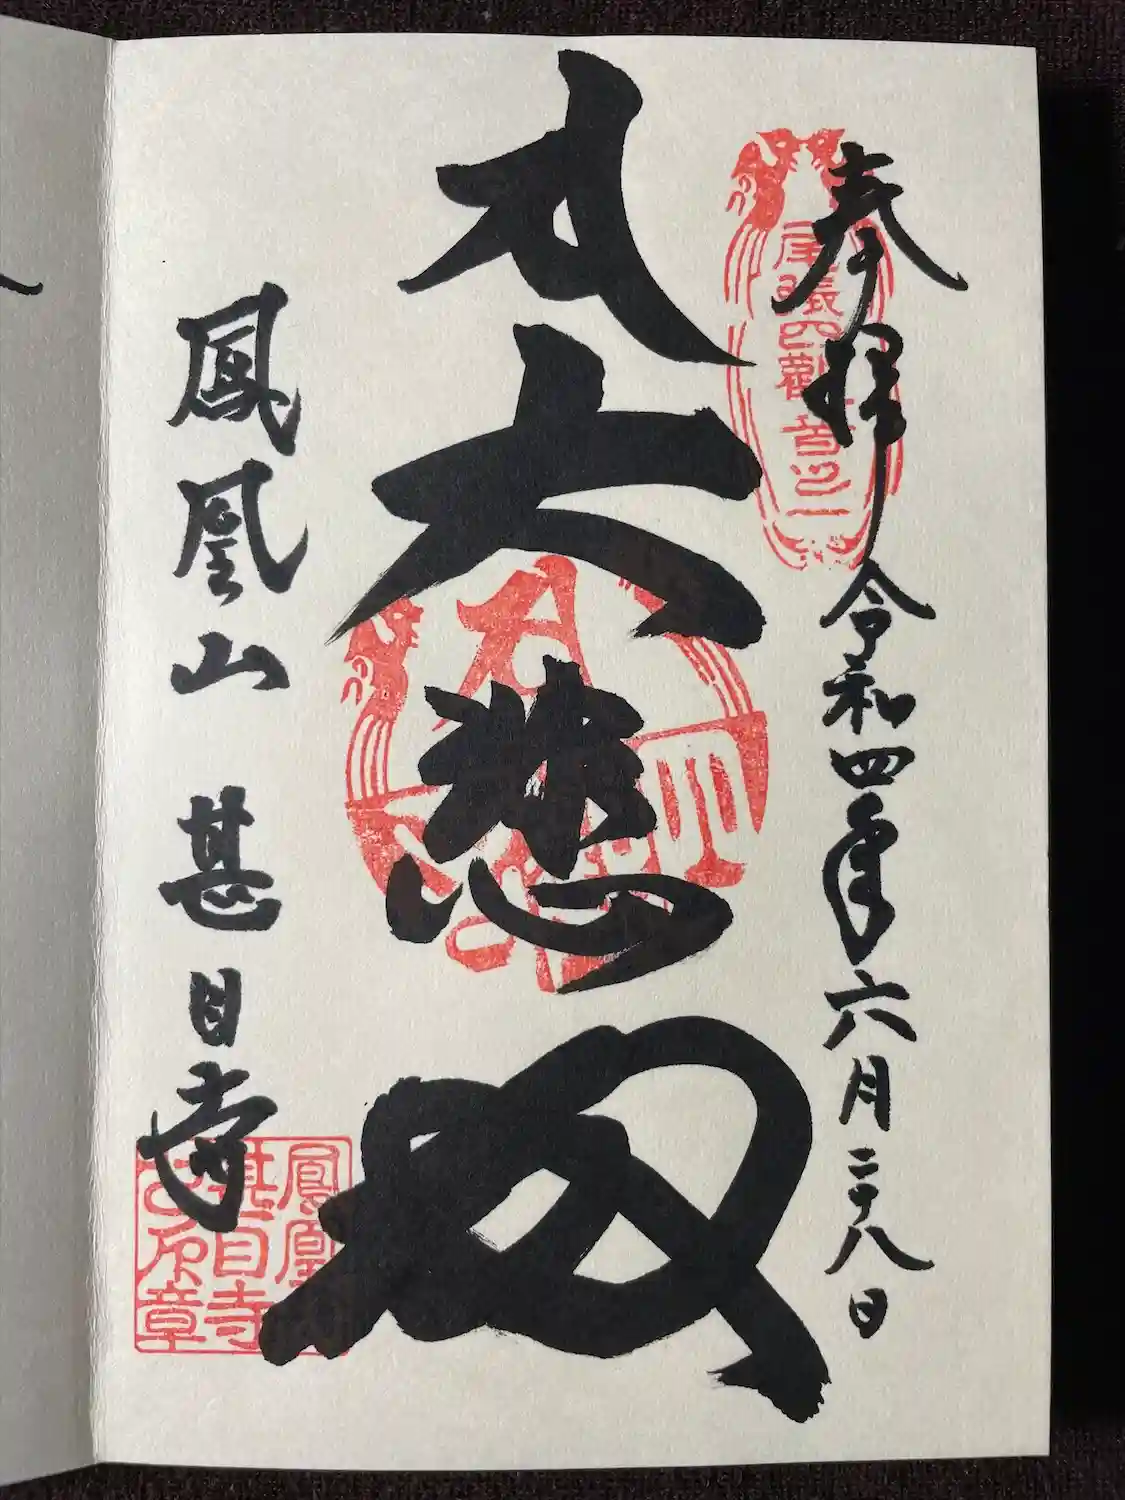 奉拝
令和四年六月二十八日
尾張四觀音之一
大悲殿
鳳凰山 甚目寺
鳳凰山
甚目寺
之印章